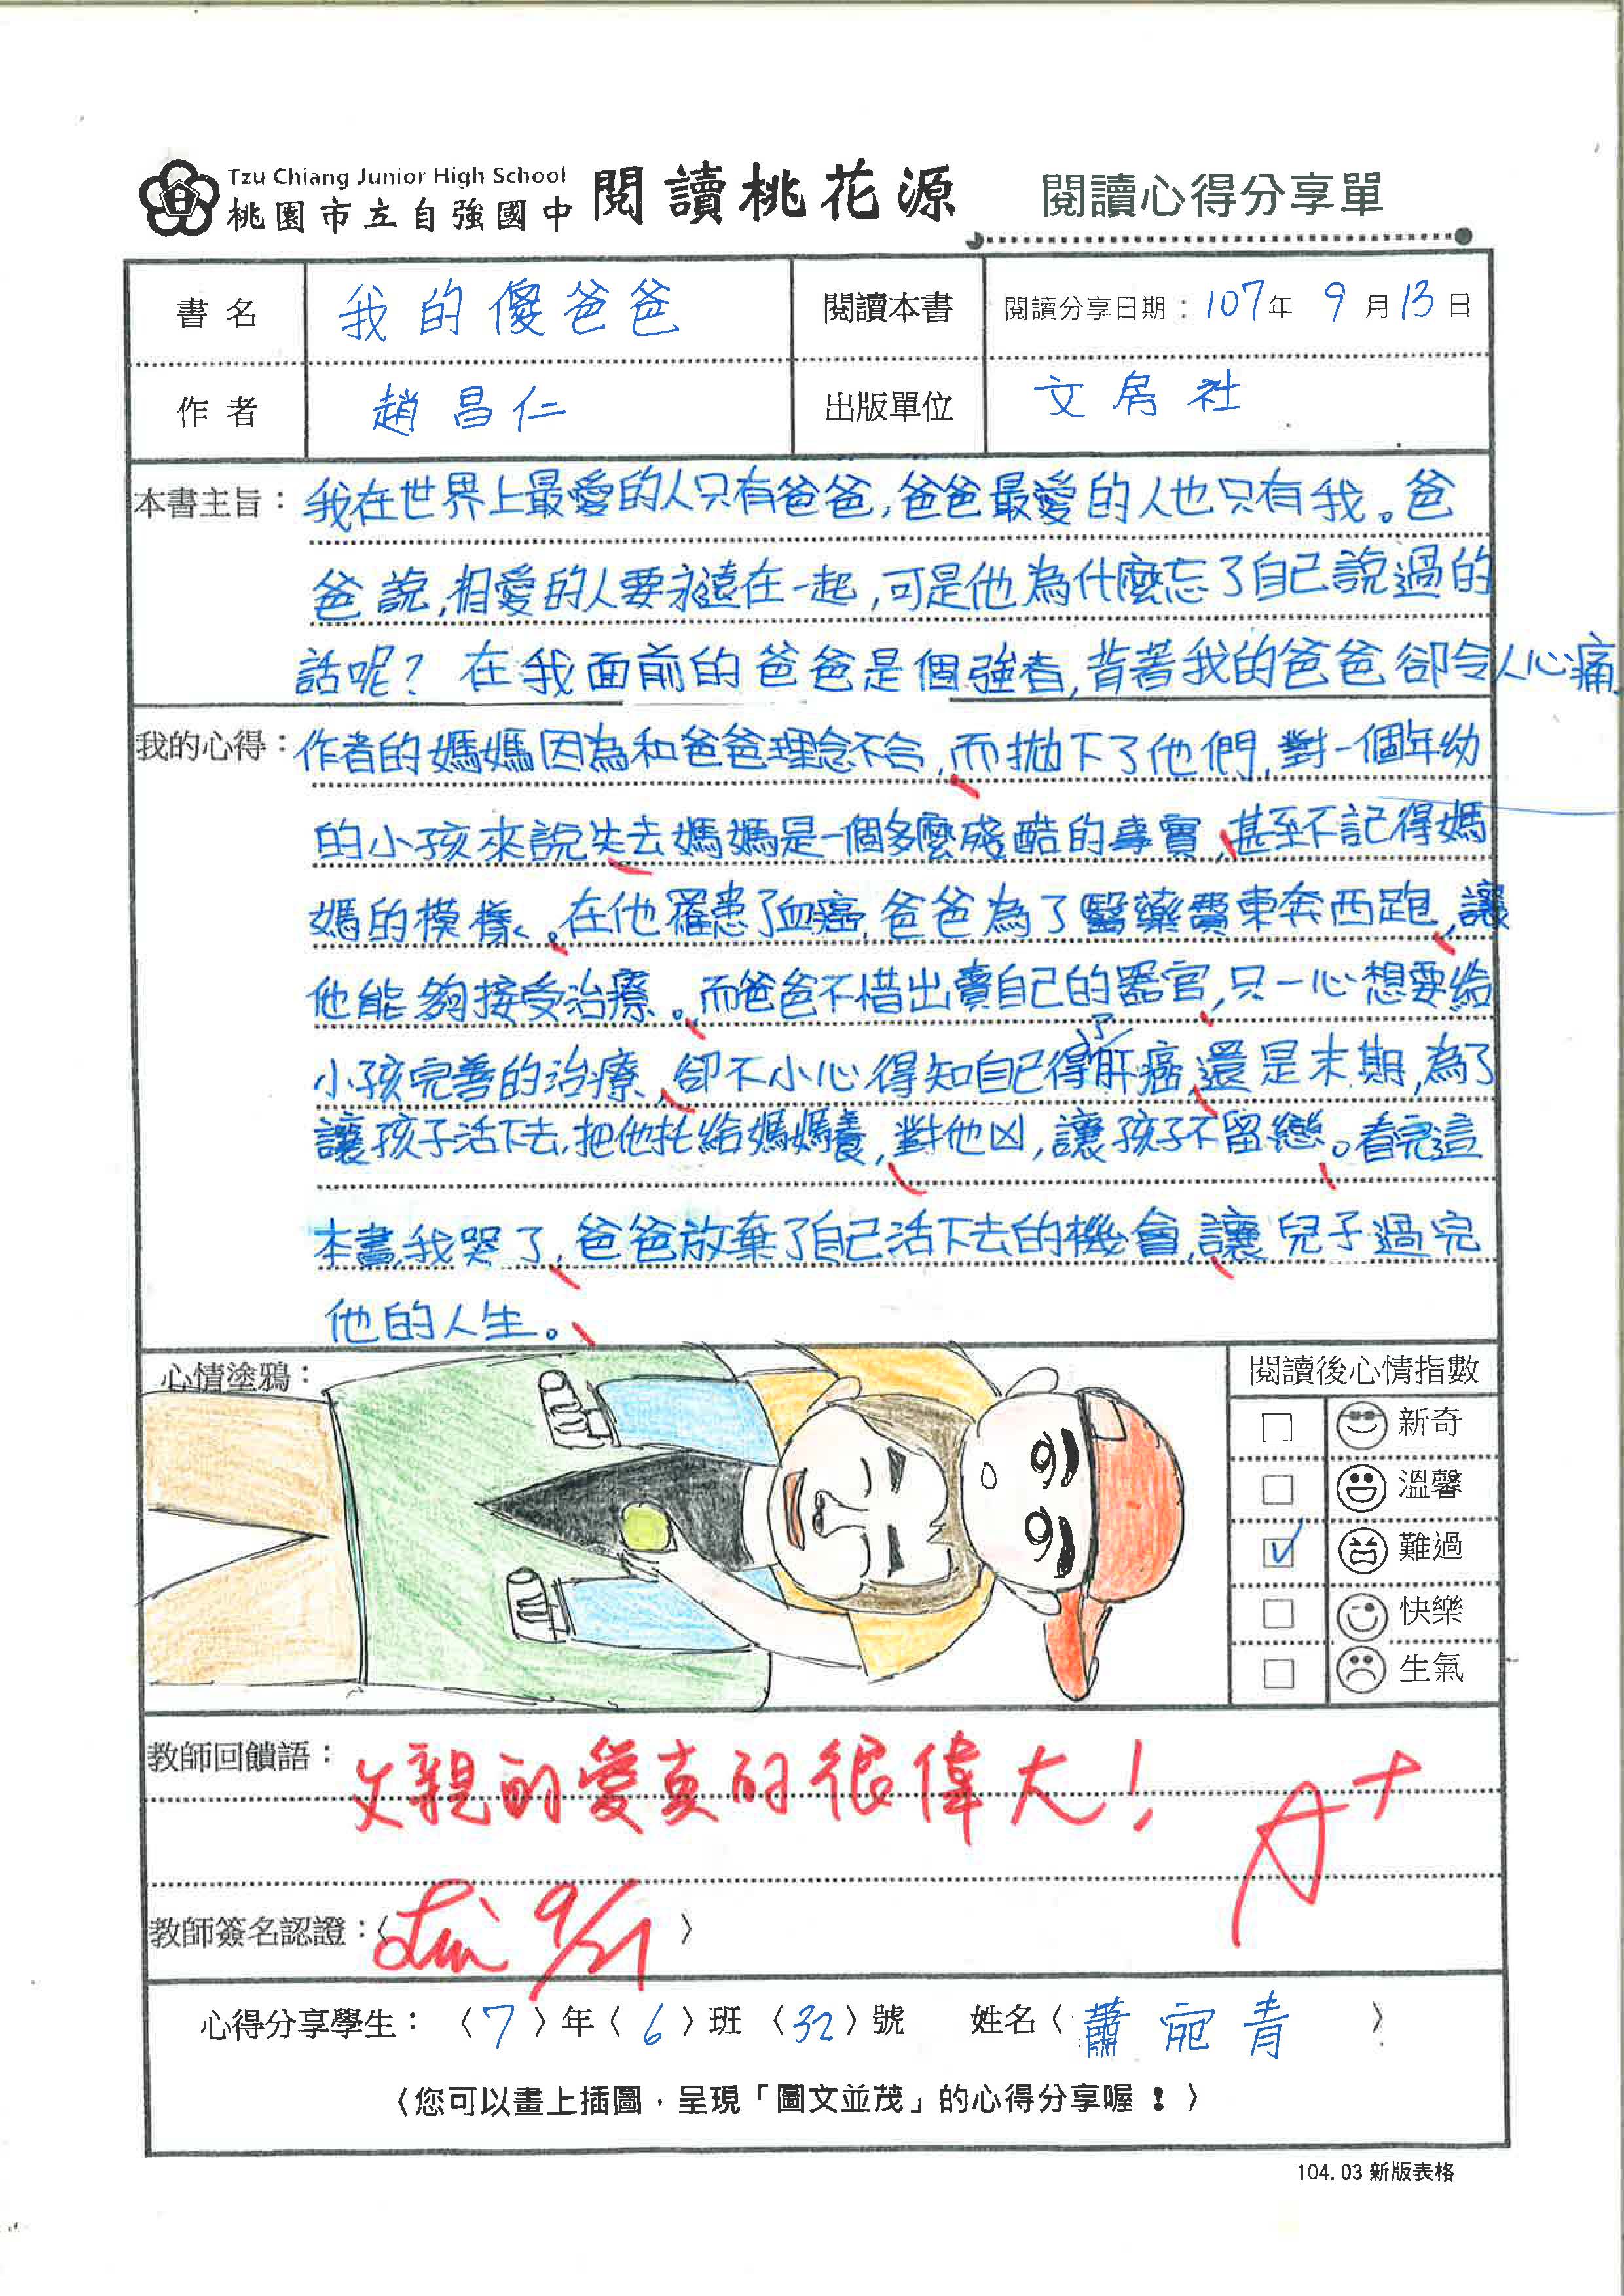 Tzu Chiang Junior High School
桃園市立自強國中 閱讀桃花源 閱讀心得分享單
書名 我的傻爸爸 閱讀本書 閱讀分享日期：107年 9月13日
作者 趙昌仁 出版單位 文房社
本書主旨：我在世界上最愛的人只有爸爸,爸爸最愛的人也只有我。爸
爸說,相愛的人要永遠在一起,可是他為什麼忘了自己說過的
話呢? 在我面前的爸爸是個強者,背著我的爸爸卻令人心痛
我的心得：作者的媽媽因為和爸爸理念不合,而拋下了他們,對一個年幼
的小孩來說失去媽媽是一個多麼殘酷的事實,甚至不記得媽
媽的模樣。在他罹患了血癌,爸爸為了醫藥費東奔西跑,讓
他能夠接受治療。而爸爸不惜出賣自己的器官,只一心想要給
小孩完善的治療,卻不小心得知自己得了肝癌,還是末期,為了
讓孩子活下去,把他托給媽媽養,對他凶,讓孩子不留戀。看完這
本書,我哭了,爸爸放棄了自己活下去的機會,讓兒子過完
他的人生。
心情塗鴉：
閱讀後心情指數
新奇
溫馨
✓ 難過
快樂
生氣
教師回饋語：父親的愛真的很偉大!
A+
教師簽名認證：〈 9/21 〉
心得分享學生：〈7〉年〈6〉班〈32〉號 姓名〈蕭宛青〉
〈您可以畫上插圖，呈現「圖文並茂」的心得分享喔！〉
104.03 新版表格